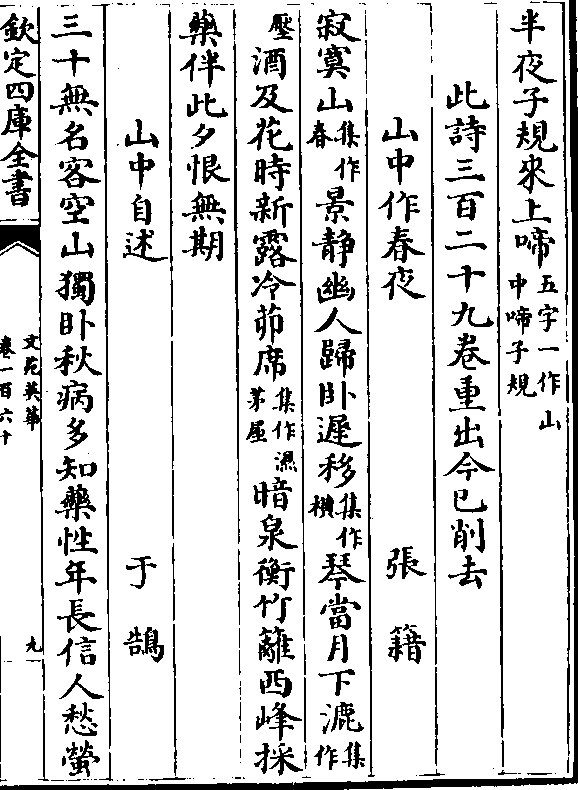 半夜子規來上啼五字一作山中啼子規
此詩三百二十九卷重出今已削去
山中作春夜 張籍
寂寞山集作春景靜幽人歸卧遲移集作橫琴當月下漉集作
壓酒及花時新露冷茆席集作濕茅屋暗泉衝竹蘺西峰採
藥伴此夕恨無期
山中自述 于鵠
三十無名客空山獨卧秋病多知藥性年長信人愁螢
欽定四庫全書
文苑英華
卷一百六十
九